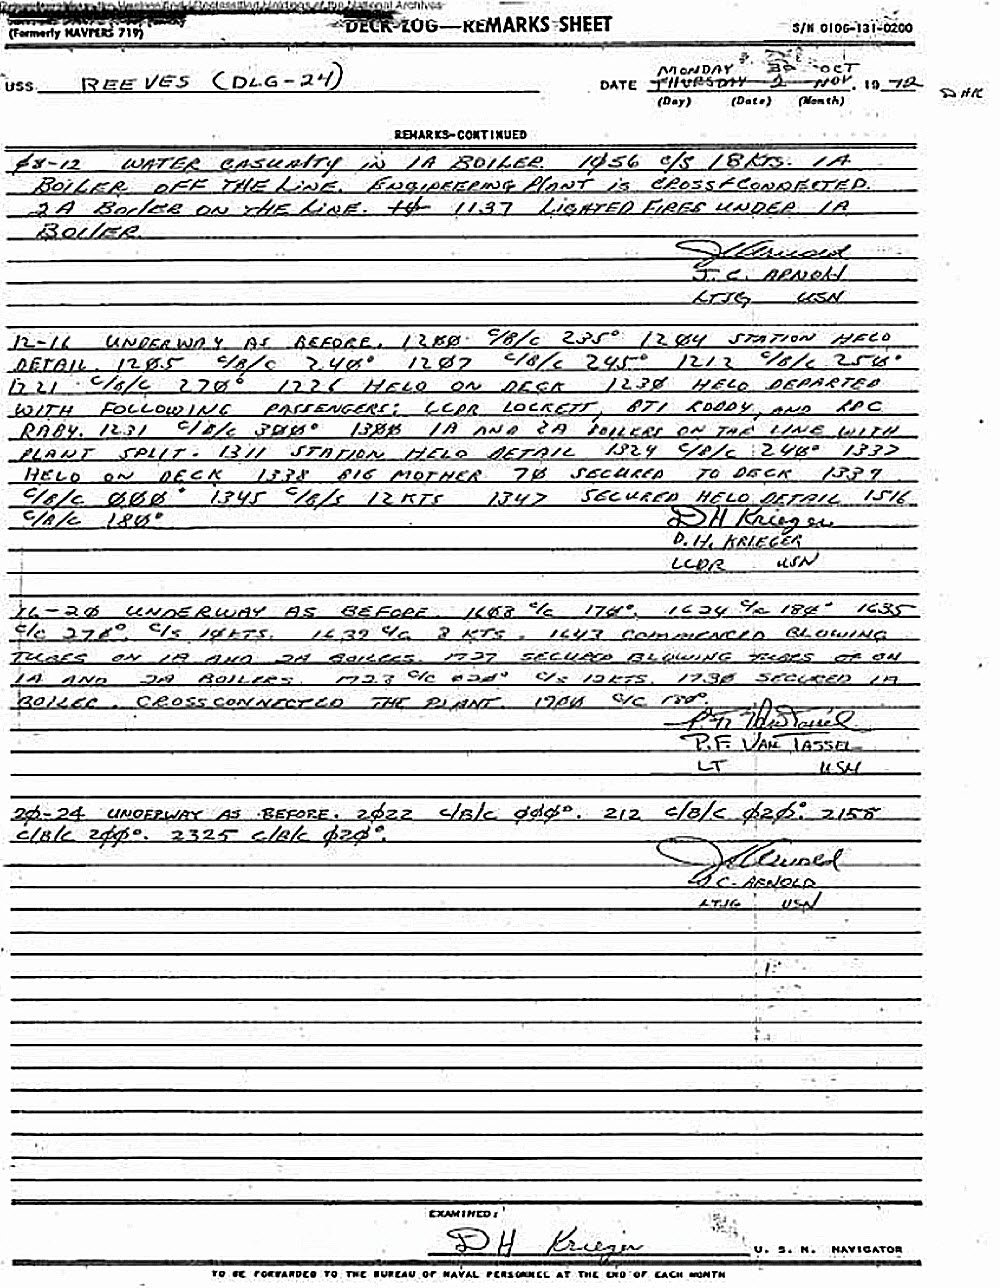 Reproduced from the Unclassified/Declassified Holdings of the National Archives
(Formerly NAVPERS 719)
DECK LOG—REMARKS SHEET
S/N 0106-131-0200
USS REEVES (DLG-24)
MONDAY 30 OCT
DATE THURSDAY 2 NOV, 19 72 DHK
(Day) (Date) (Month)
REMARKS-CONTINUED
Ø8-12 WATER CASUALTY IN 1A BOILER. 1Ø56 C/S 18 KTS. 1A
BOILER OFF THE LINE. ENGINEERING PLANT IS CROSSCONNECTED.
2A BOILER ON THE LINE. 1137 LIGHTED FIRES UNDER 1A
BOILER.
J C Arnold
J. C. ARNOLD
LTJG USN
12-16 UNDERWAY AS BEFORE. 12ØØ C/B/C 235° 12Ø4 STATION HELO
DETAIL. 12Ø5 C/B/C 24Ø° 12Ø7 C/B/C 245° 1212 C/B/C 25Ø°
1221 C/B/C 27Ø° 1226 HELO ON DECK 123Ø HELO DEPARTED
WITH FOLLOWING PASSENGERS; LCDR LOCKETT, BT1 RODDY, AND RPC
RABY. 1231 C/B/C 3ØØ° 13ØØ 1A AND 2A BOILERS ON THE LINE WITH
PLANT SPLIT. 1311 STATION HELO DETAIL 1324 C/B/C 24Ø° 1337
HELO ON DECK 1338 BIG MOTHER 7Ø SECURED TO DECK 1339
C/B/C ØØØ° 1345 C/B/S 12 KTS 1347 SECURED HELO DETAIL 1516
C/B/C 18Ø°
D H Krieger
D. H. KRIEGER
LCDR USN
16-2Ø UNDERWAY AS BEFORE. 16Ø3 C/C 17Ø°. 1624 C/C 18Ø° 1635
C/C 27Ø°. C/S 1Ø KTS. 1639 C/S 8 KTS. 1643 COMMENCED BLOWING
TUBES ON 1A AND 2A BOILERS. 1727 SECURED BLOWING TUBES ON
1A AND 2A BOILERS. 1723 C/C Ø2Ø° C/S 12 KTS. 173Ø SECURED 1A
BOILER. CROSSCONNECTED THE PLANT. 19ØØ C/C 18Ø°.
P. F. Van Tassel
P. F. VAN TASSEL
LT USN
2Ø-24 UNDERWAY AS BEFORE. 2Ø22 C/B/C ØØØ°. 212 C/B/C Ø2Ø°. 2158
C/B/C 2ØØ°. 2325 C/B/C Ø2Ø°.
J C Arnold
J C. ARNOLD
LTJG USN
EXAMINED:
D H Krieger
U. S. N. NAVIGATOR
TO BE FORWARDED TO THE BUREAU OF NAVAL PERSONNEL AT THE END OF EACH MONTH